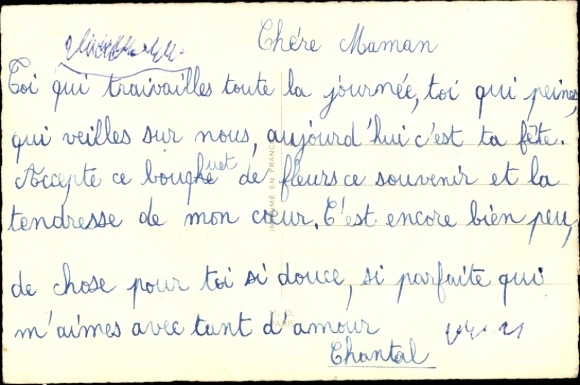 Chére Maman
Toi qui traivailles toute la journée, toi qui peines,
qui veilles sur nous, aujourd'hui c'est ta fête.
Accepte ce boughuet de fleurs ce souvenir et la
tendresse de mon cœur. C'est encore bien peu,
de chose pour toi si douce, si parfaite qui
m'aimes avec tant d'amour
Chantal